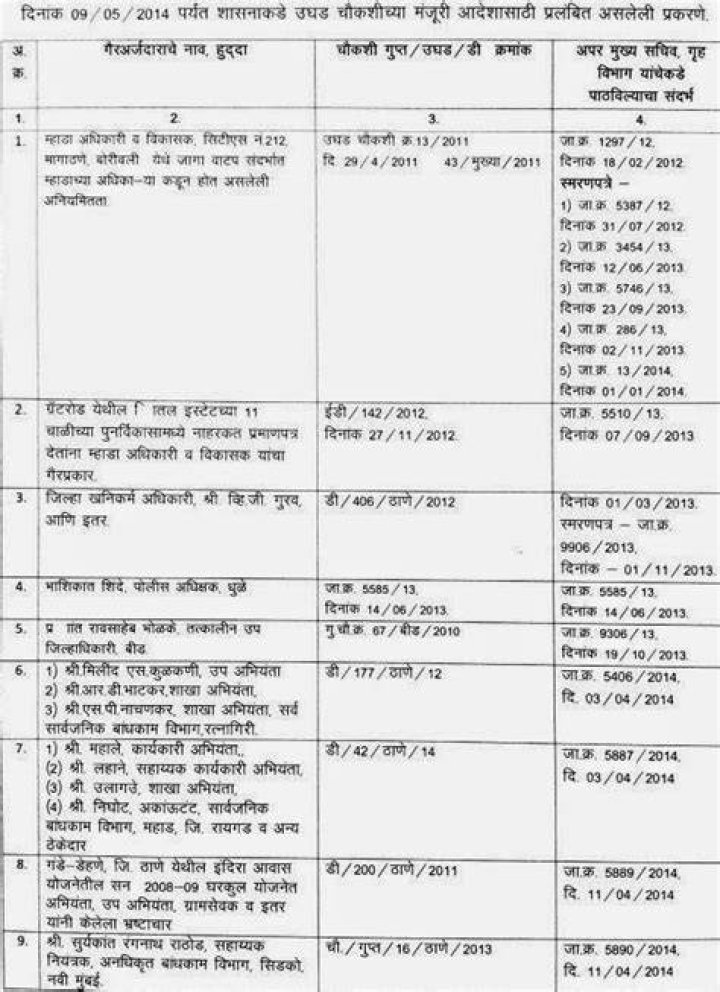 दिनांक 09/05/2014 पर्यंत शासनाकडे उघड चौकशीच्या मंजूरी आदेशासाठी प्रलंबित असलेली प्रकरणे.
अ. क्र.
गैरअर्जदाराचे नाव, हुद्दा
चौकशी गुप्त/उघड/डी क्रमांक
अपर मुख्य सचिव, गृह
विभाग यांचेकडे
पाठविल्याचा संदर्भ
1. 2. 3. 4.
1.
म्हाडा अधिकारी व विकासक, सिटीएस नं.212,
मागाठणे, बोरीवली येथे जागा वाटप संदर्भात
म्हाडाच्या अधिका-या कडून होत असलेली
अनियमितता
उघड चौकशी क्र.13/2011
दि. 29/4/2011 43/मुख्या/2011
जा.क्र. 1297/12,
दिनांक 18/02/2012.
स्मरणपत्रे –
1) जा.क्र. 5387/12,
दिनांक 31/07/2012.
2) जा.क्र. 3454/13,
दिनांक 12/06/2013.
3) जा.क्र. 5746/13,
दिनांक 23/09/2013.
4) जा.क्र. 286/13,
दिनांक 02/11/2013.
5) जा.क्र. 13/2014,
दिनांक 01/01/2014.
2.
ग्रॅंटरोड येथील इस्टेटच्या 11
चाळीच्या पुनर्विकासामध्ये नाहरकत प्रमाणपत्र
देतांना म्हाडा अधिकारी व विकासक यांचा
गैरप्रकार.
ईडी/142/2012,
दिनांक 27/11/2012.
जा.क्र. 5510/13,
दिनांक 07/09/2013
3.
जिल्हा खनिकर्म अधिकारी, श्री. व्हि.जी. गुरव,
आणि इतर.
डी/406/ठाणे/2012
दिनांक 01/03/2013.
स्मरणपत्र – जा.क्र.
9906/2013,
दिनांक – 01/11/2013.
4.
भाशिकांत शिंदे, पोलीस अधिक्षक, धुळे
जा.क्र. 5585/13,
दिनांक 14/06/2013.
जा.क्र. 5585/13,
दिनांक 14/06/2013.
5.
रावसाहेब भोळके, तत्कालीन उप
जिल्हाधिकारी, बीड.
गु.चौ.क्र. 67/बीड/2010
जा.क्र. 9306/13,
दिनांक 19/10/2013.
6.
1) श्री.मिलींद एस.कुळकर्णी, उप अभियंता
2) श्री.आर.डी.भाटकर,शाखा अभियंता,
3) श्री.एस.पी.नाचणकर, शाखा अभियंता, सर्व
सार्वजनिक बांधकाम विभाग,रत्नागिरी.
डी/177/ठाणे/12
जा.क्र. 5406/2014,
दि. 03/04/2014
7.
1) श्री. महाले, कार्यकारी अभियंता,,
(2) श्री. लहाने, सहाय्यक कार्यकारी अभियंता,
(3) श्री. उलागडे, शाखा अभियंता,
(4) श्री. निघोट, अकाऊटंट, सार्वजनिक
बांधकाम विभाग, महाड, जि. रायगड व अन्य
ठेकेदार
डी/42/ठाणे/14
जा.क्र. 5887/2014,
दि. 03/04/2014
8.
गंडे–डेहणे, जि. ठाणे येथील इंदिरा आवास
योजनेतील सन 2008-09 घरकुल योजनेत
अभियंता, उप अभियंता, ग्रामसेवक व इतर
यांनी केलेला भ्रष्टाचार
डी/200/ठाणे/2011
जा.क्र. 5889/2014,
दि. 11/04/2014
9.
श्री. सुर्यकांत रंगनाथ राठोड, सहाय्यक
नियंत्रक, अनधिकृत बांधकाम विभाग, सिडको,
नवी मुंबई.
चौ./गुप्त/16/ठाणे/2013
जा.क्र. 5890/2014,
दि. 11/04/2014